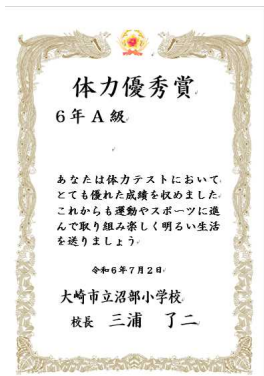 体力優秀賞
6年A級
あなたは体力テストにおいて
とても優れた成績を収めました
これからも運動やスポーツに進
んで取り組み楽しく明るい生活
を送りましょう
令和6年7月2日
大崎市立沼部小学校
校長 三浦 了二